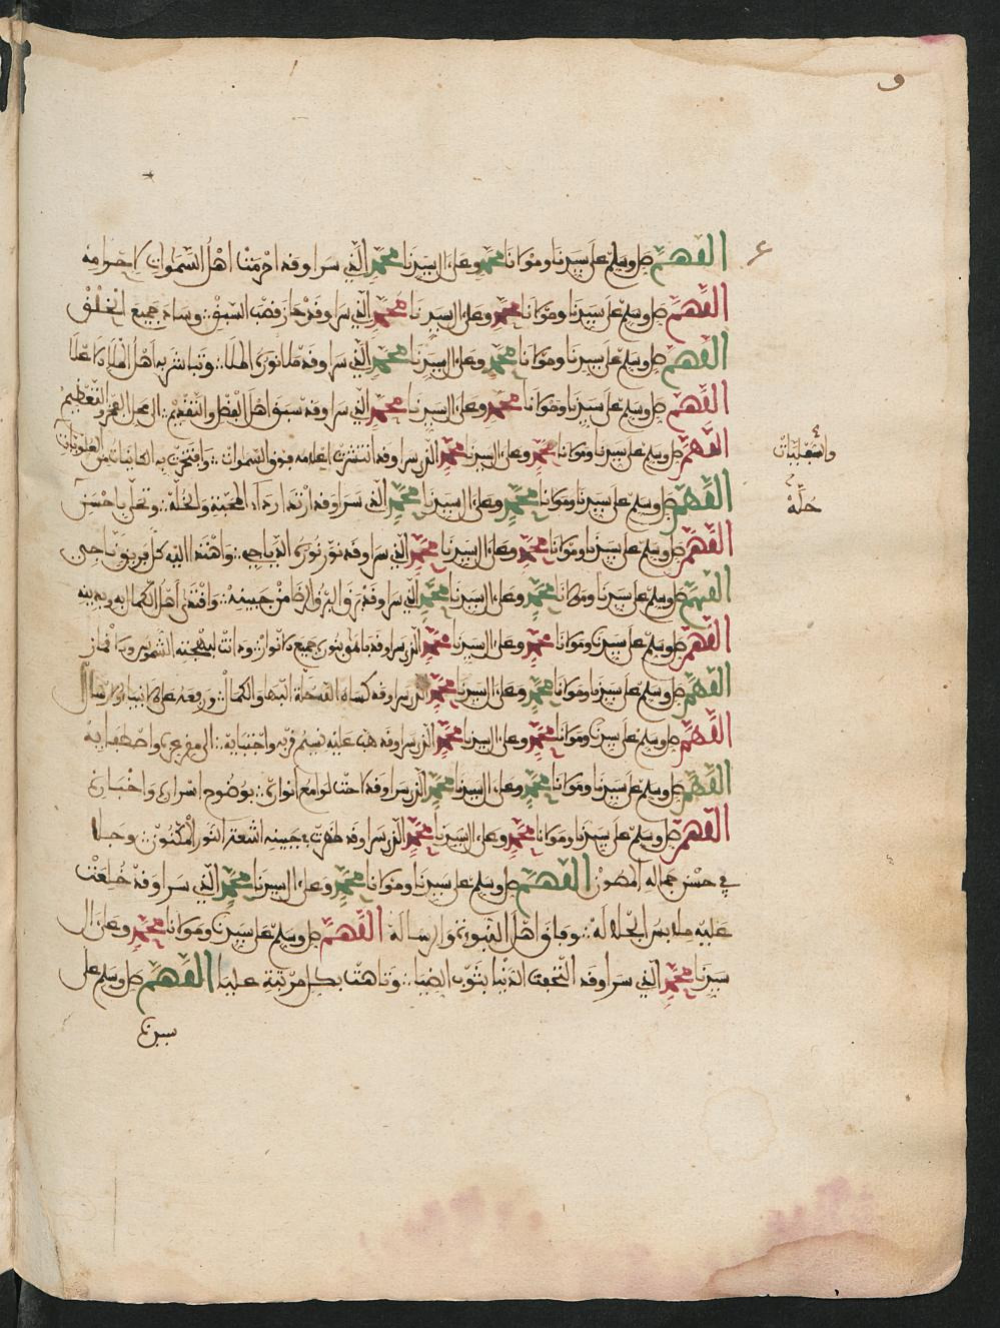 اللهم صل وسلم على سيدنا ومولانا محمد وعلى ال سيدنا محمد الذي سرا وقد احرمت اهل السموات لاحرامه
اللهم صل وسلم على سيدنا ومولانا محمد وعلى ال سيدنا محمد الذي سرا وقد حاز قصب السبق وساد جميع الخلق
اللهم صل وسلم على سيدنا ومولانا محمد وعلى ال سيدنا محمد الذي سرا وقد ملا نوره الملا وتباشر به اهل الملا الاعلا
اللهم صل وسلم على سيدنا ومولانا محمد وعلى ال سيدنا محمد الذي سرا وقد سبق اهل الفضل والتقديم الى محل العز والتعظيم
اللهم صل وسلم على سيدنا ومولانا محمد وعلى ال سيدنا محمد الذي سرا وقد انتشرت اعلامه فوق السموات وافتخرت به الكاينات من العلويات
والسفليات
اللهم صل وسلم على سيدنا ومولانا محمد وعلى ال سيدنا محمد الذي سرا وقد ارتدا رداء المحبة والخلة وتحلى باحسن
حلة
اللهم صل وسلم على سيدنا ومولانا محمد وعلى ال سيدنا محمد الذي سرا وقد نور نوره الدياجي واهتدا اليه كل فريق ناجي
اللهم صل وسلم على سيدنا ومولانا محمد وعلى ال سيدنا محمد الذي سرا وقد من جبينه واقتدى اهل الكمال به وبدينه
اللهم صل وسلم على سيدنا ومولانا محمد وعلى ال سيدنا محمد الذي سرا وقد بنوره جميع الانوار ودانت لبهجته الشموس والاقمار
اللهم صل وسلم على سيدنا ومولانا محمد وعلى ال سيدنا محمد الذي سرا وقد كساه الله حلة البهاء والكمال ورفعه على الانبياء والارسال
اللهم صل وسلم على سيدنا ومولانا محمد وعلى ال سيدنا محمد الذي سرا وقد هب عليه نسيم قربه واجتبايه واصطفايه
اللهم صل وسلم على سيدنا ومولانا محمد وعلى ال سيدنا محمد الذي سرا وقد لاحت لوامع انواره بوضوح اسراره واخباره
اللهم صل وسلم على سيدنا ومولانا محمد وعلى ال سيدنا محمد الذي سرا وقد ظهرت في جبينه اشعة النور المكنون وجلا
في حسن جماله المصون اللهم صل وسلم على سيدنا ومولانا محمد وعلى ال سيدنا محمد الذي سرا وقد خلعت
عليه ملابس الجلالة وفاق اهل النبوءة والرسالة اللهم صل وسلم على سيدنا ومولانا محمد وعلى ال
سيدنا محمد الذي سرا وقد التحفت الدنيا بثوب الضيا وتاهت بكل مرتبة عليا اللهم صل وسلم على
سيدنا